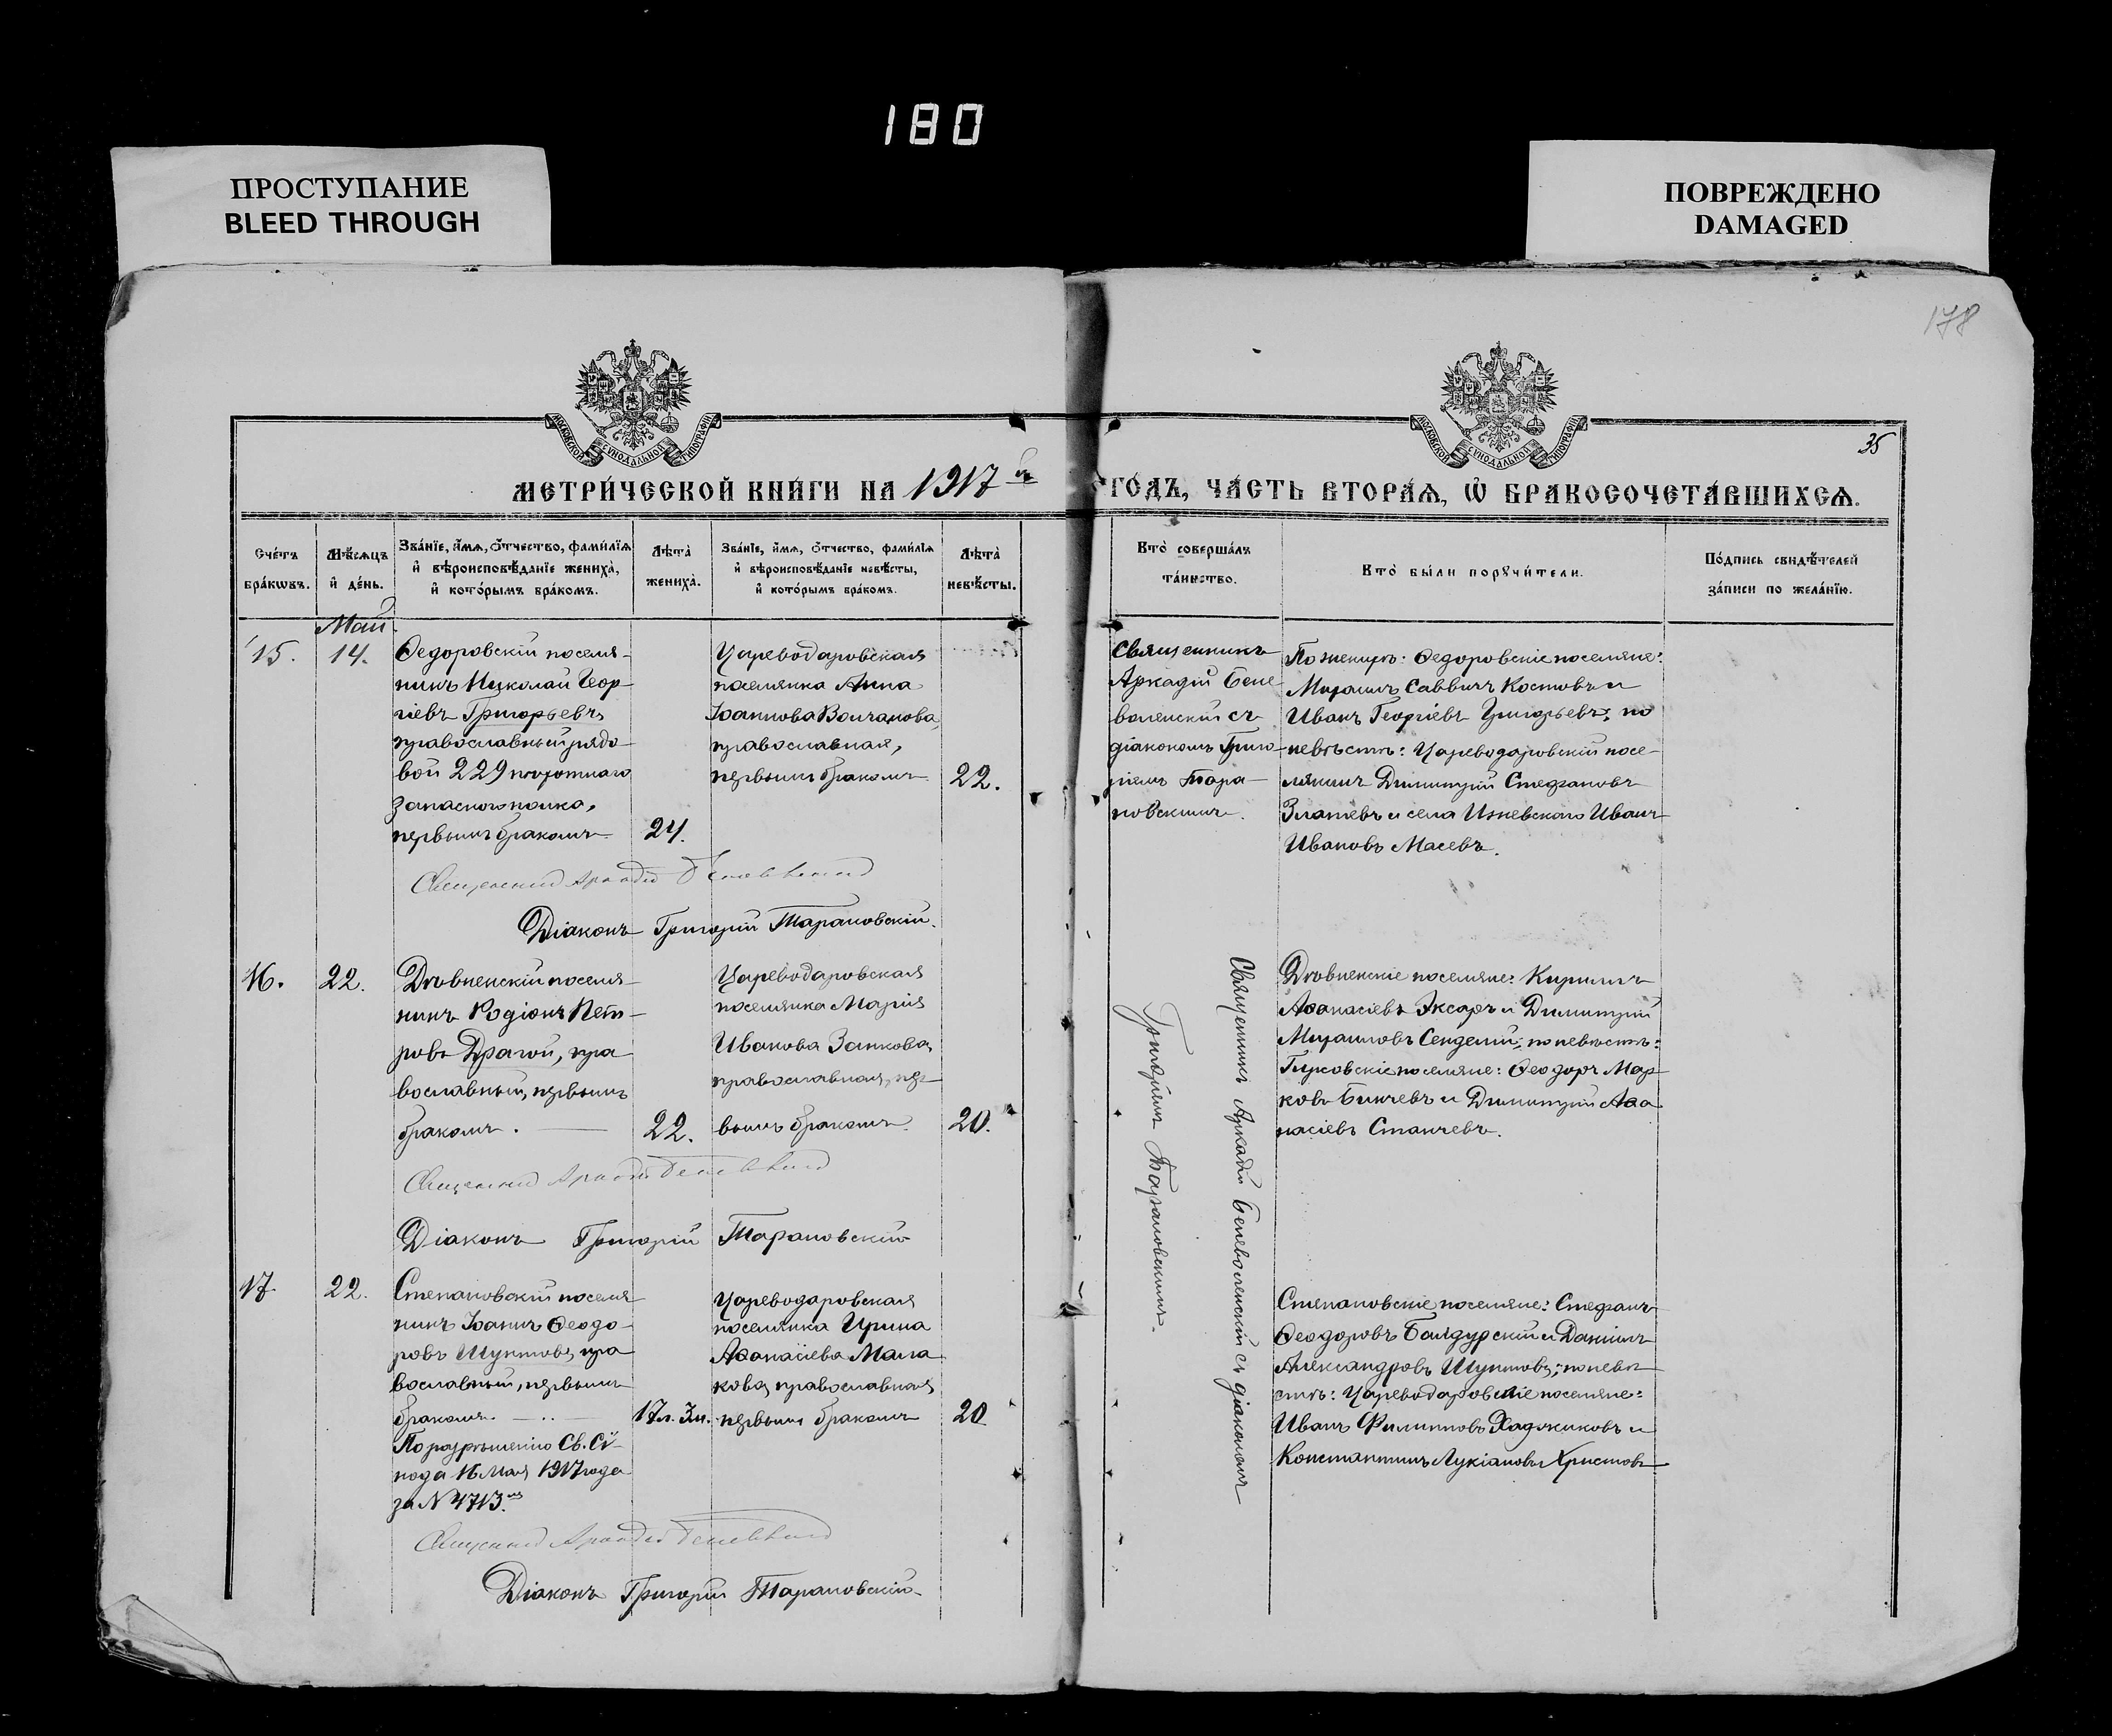 180
ПРОСТУПАНИЕ
BLEED THROUGH
ПОВРЕЖДЕНО
DAMAGED
178
35
МОСКОВСКОЙ СѴНОДАЛЬНОЙ ТИПОГРАФІИ
МОСКОВСКОЙ СѴНОДАЛЬНОЙ ТИПОГРАФІИ
МЕТРИ́ЧЕСКОЙ КНИ́ГИ НА 1917 й ГО́ДЪ, ЧА́СТЬ ВТОРА́Ѧ, Ѡ҆ БРАКОСОЧЕТА́ВШИХСѦ.
Сче́тъ бра́кѡвъ.
Мѣ́сѧцъ и҆ де́нь.
Зва́нїе, и҆́мѧ, ѻ҆́тчество, фами́лїѧ и҆ вѣроисповѣ́данїе жениха̀, и҆ кото́рымъ бра́комъ.
Лѣ́та̀ жениха̀.
Зва́нїе, и҆́мѧ, ѻ҆́тчество, фами́лїѧ и҆ вѣроисповѣ́данїе невѣ́сты, и҆ кото́рымъ бра́комъ.
Лѣ́та̀ невѣ́сты.
Кто̀ соверша́лъ та́инство.
Кто̀ бы́ли порꙋчи́тели.
По́дпись свидѣ́телей за́писи по жела́нїю.
Май.
15.
14.
Ѳедоровскій поселя-
нинъ Николай Геор-
гіевъ Григорьевъ,
православный, рядо-
вой 229 пехотнаго
запаснаго полка,
первымъ бракомъ
24.
Цареводаровская
поселянка Анна
Іоаннова Волчанова,
православная,
первымъ бракомъ
22.
Священникъ
Аркадій Бене-
воленскій съ
діакономъ Григо-
ріемъ Тара-
новскимъ.
По жениху: Ѳедоровскіе поселяне:
Михаилъ Саввичъ Костовъ и
Иванъ Георгіевъ Григорьевъ; по
невѣстѣ: Цареводаровскій посе-
лянинъ Димитрій Стефановъ
Златевъ и села Иванъ
Ивановъ Масевъ.
Священникъ Аркадій
Діаконъ Григорій Тарановскій.
16.
22.
Дѣвненскій поселя-
нинъ Родіонъ Пет-
ровъ Драгой, пра-
вославный, первымъ
бракомъ.
22.
Цареводаровская
поселянка Марія
Иванова Занкова,
православная, пер-
вымъ бракомъ.
20.
Священникъ Аркадій Беневоленскій съ діакономъ
Григоріемъ Тарановскимъ.
Дѣвненскіе поселяне: Кириллъ
Аѳанасіевъ Эксаръ и Димитрій
Михаиловъ Сенделій; по невѣстѣ:
поселяне: Ѳеодоръ Мар-
ковъ Бинчевъ и Димитрій Аѳа-
насіевъ Станчевъ.
Священникъ Аркадій
Діаконъ Григорій Тарановскій
17.
22.
Степановскій поселя-
нинъ Іоаннъ Ѳеодо-
ровъ Шуптовъ, пра-
вославный, первымъ
бракомъ.
По разрѣшенію Св. Сѵ-
нода 16 Мая 1917 года
за № 4713.мъ
17 л. 3 м.
Цареводаровская
поселянка Ирина
Аѳанасіева Мала-
кова, православная,
первымъ бракомъ
20
Степановскіе поселяне: Стефанъ
Ѳеодоровъ Балдурскій и Даніилъ
Александровъ Шуптовъ; по невѣ-
стѣ: Цареводаровскіе поселяне:
Иванъ Филипповъ Хаджиковъ и
Константинъ Лукіановъ Христовъ
Священникъ Аркадій
Діаконъ Григорій Тарановскій